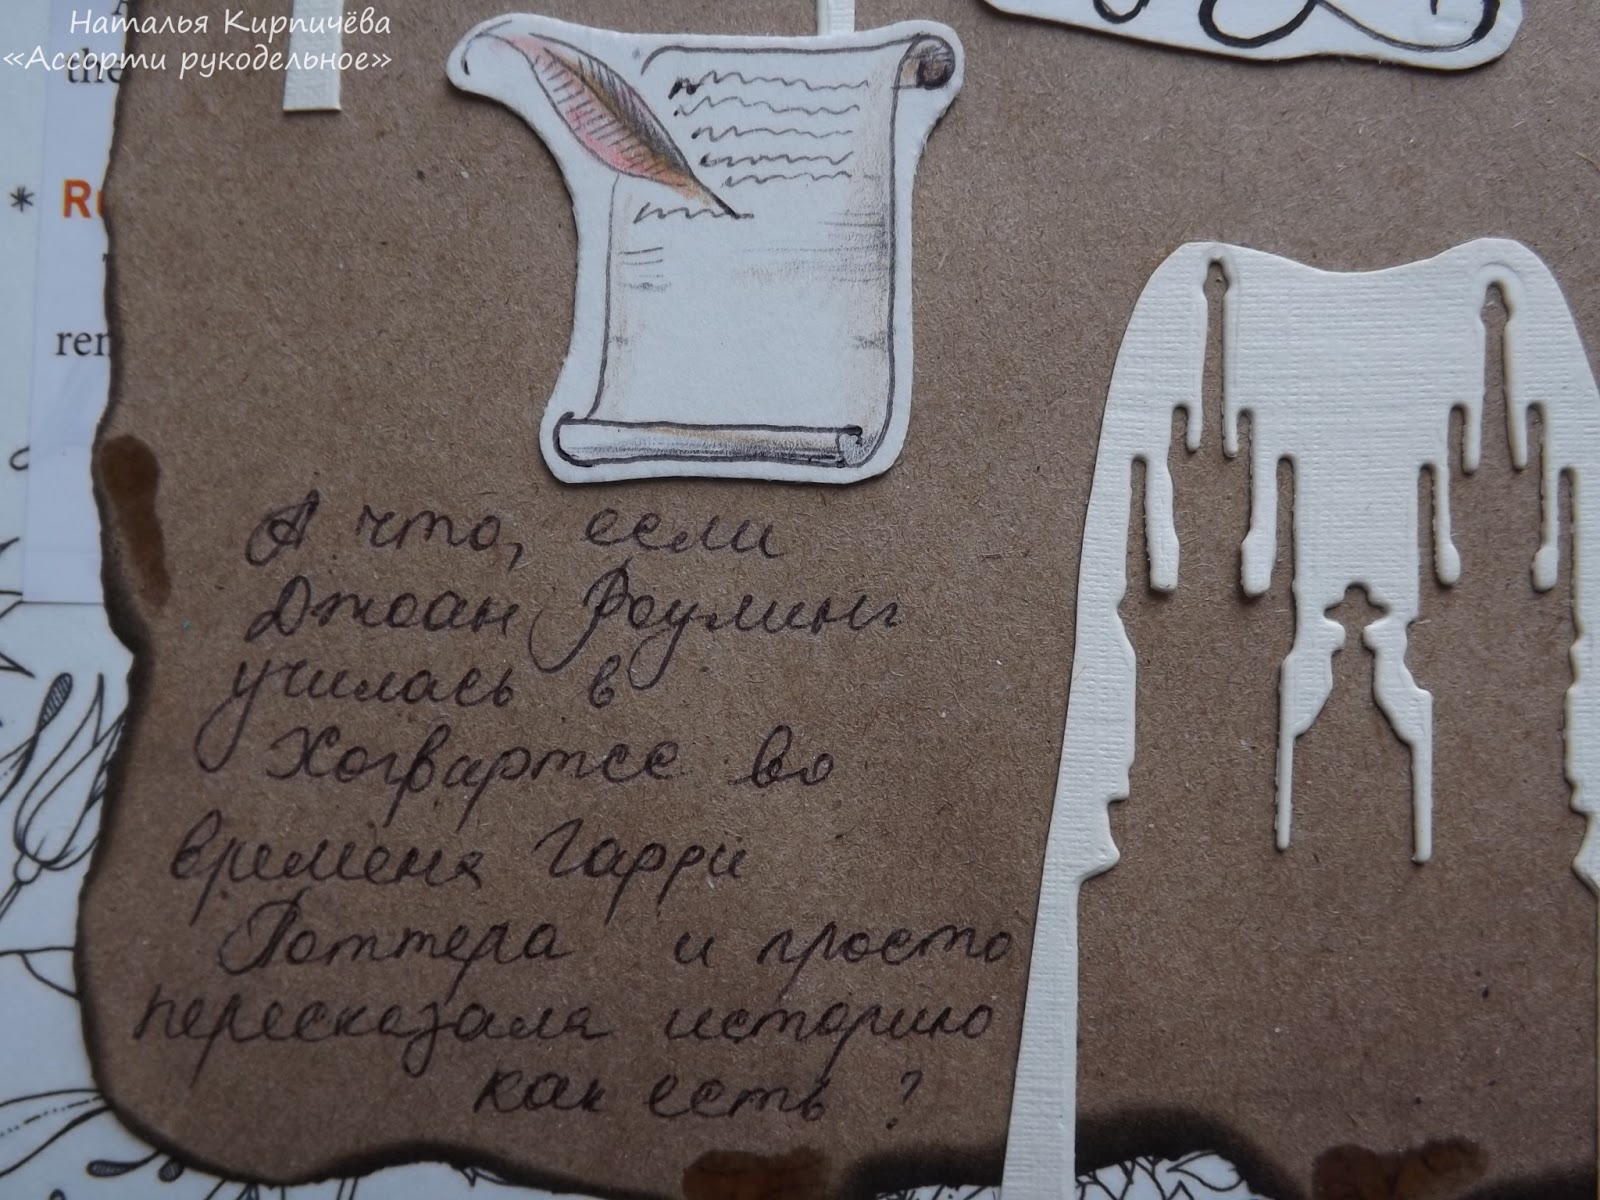 Наталья Кирпичёва
«Ассорти рукодельное»
the
*
ren
А что, если
Джоан Роулинг
училась в
Хогвартсе во
времена Гарри
Поттера и просто
пересказала историю
как есть?